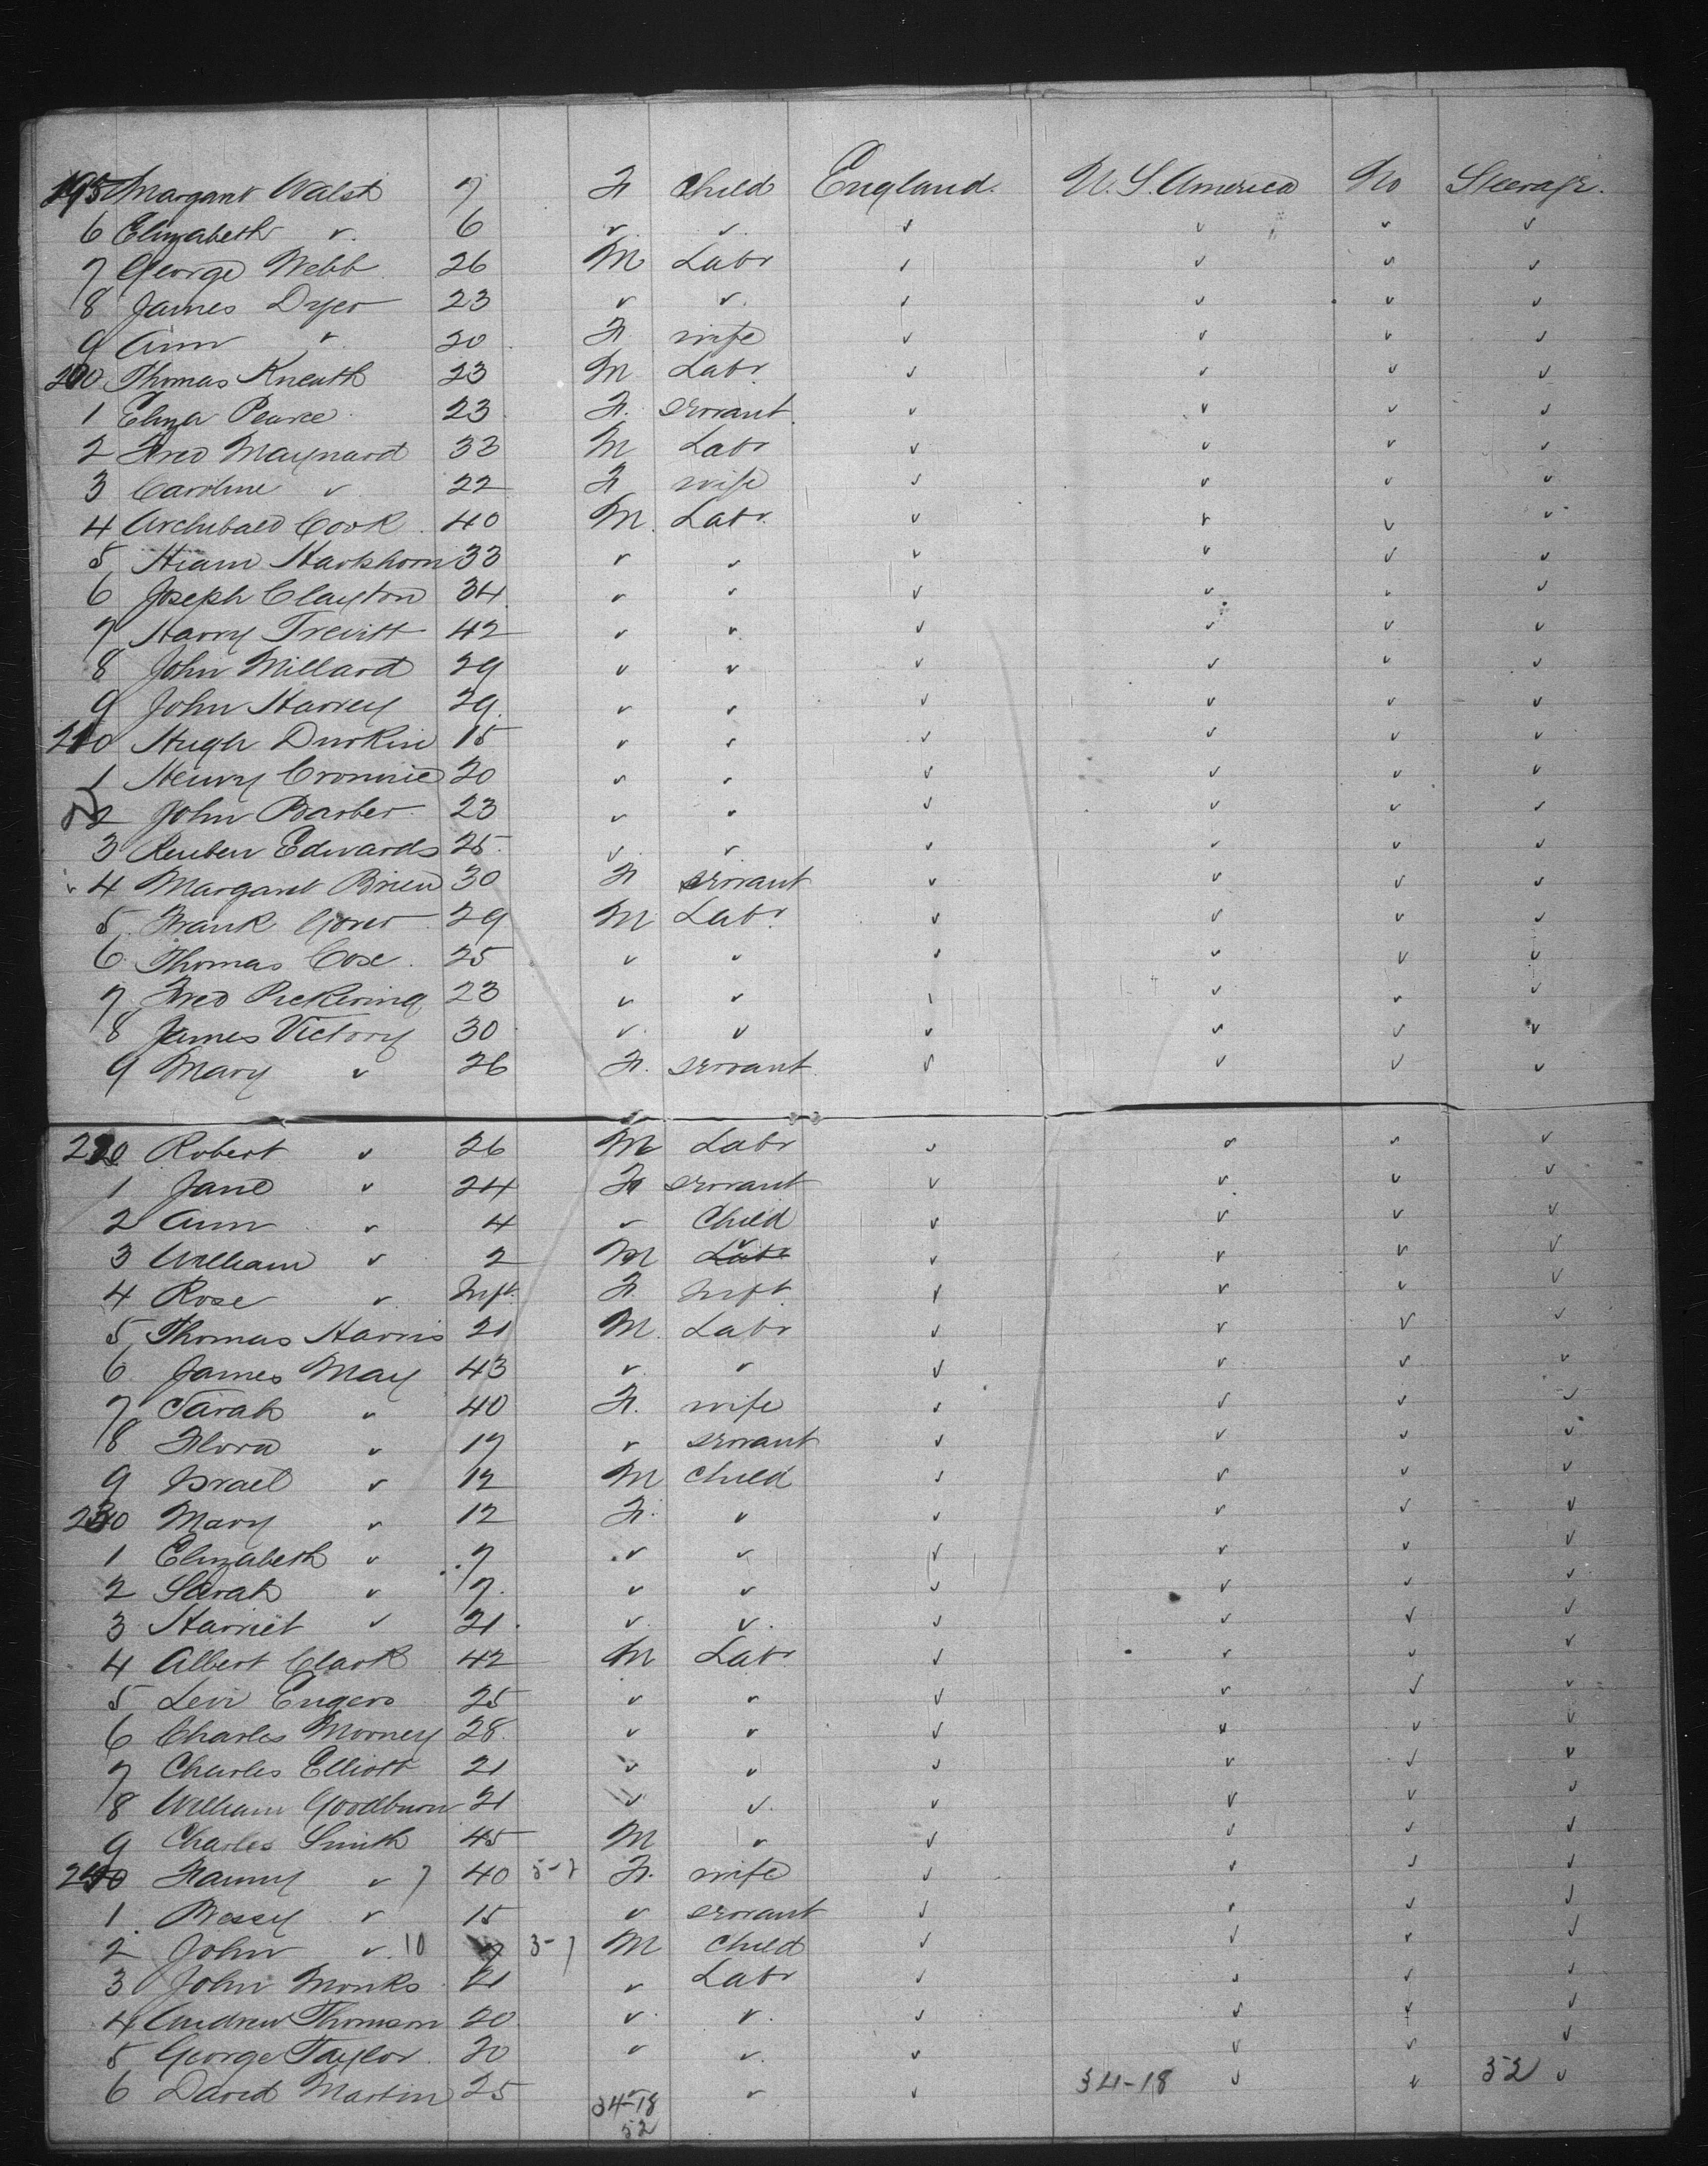 195 Margaret Walsh 7 F Child England. U.S. America No Steerage.
6 Elizabeth " 6 " " " " " "
7 George Webb 26 M Labr " " " "
8 James Dyer 23 " " " " " "
9 Ann " 20 F wife " " " "
200 Thomas Kneath 23 M Labr " " " "
1 Eliza Pearce 23 F. servant " " " "
2 Fred Maynard 33 M Labr " " " "
3 Caroline " 22 F wife " " " "
4 Archibald Cook 40 M. Labr. " " " "
5 Hiam Hartshorn 33 " " " " " "
6 Joseph Clayton 34 " " " " " "
7 Harry Trevitt 42 " " " " " "
8 John Millard 29 " " " " " "
9 John Harvey 29. " " " " " "
210 Hugh Durkin 15 " " " " " "
1 Henry Crommie 20 " " " " " "
2 John Barber 23 " " " " " "
3 Reuben Edwards 25. " " " " " "
4 Margaret Brien 30 F servant " " " "
5 Frank Gover 29 M Labr. " " " "
6 Thomas Cose 25 " " " " " "
7 Fred Pickering 23 " " " " " "
8 James Victory 30 " " " " " "
9 Mary " 26 F. servant " " " "
220 Robert " 26 M Labr " " " "
1 Jane " 24 F servant " " " "
2 Ann " 4 " Child " " " "
3 William " 2 M Labr " " " " "
4 Rose " Inft. F. Inft " " " "
5 Thomas Harris 21 M. Labr " " " "
6 James May 43 " " " " " "
7 Sarah " 40 F. wife " " " "
8 Flora " 17 " servant " " " "
9 Israel " 12 M Child " " " "
230 Mary " 12 F. " " " " "
1 Elizabeth " 7 " " " " " "
2 Sarah " 7. " " " " " "
3 Harriet " 21. " " " " " "
4 Albert Clark 42 M Labr " " " "
5 Levi Engers 25 " " " " " "
6 Charles Morney 28. " " " " " "
7 Charles Elliott 21 " " " " " "
8 William Goodburn 21 " " " " " "
9 Charles Smith 45 M " " " " "
240 Fanny " 7 40 5-7 F. wife " " " "
1 Bessy " 15 " servant " " " "
2 John " 10 7 3-7 M Child " " " "
3 John Monks 21 " Labr " " " "
4 Andrew Thomson 20 " " " " " "
5 George Taylor 20 " " " " " "
6 David Martin 25 " " " 34-18 " " 52 "
34-18
52